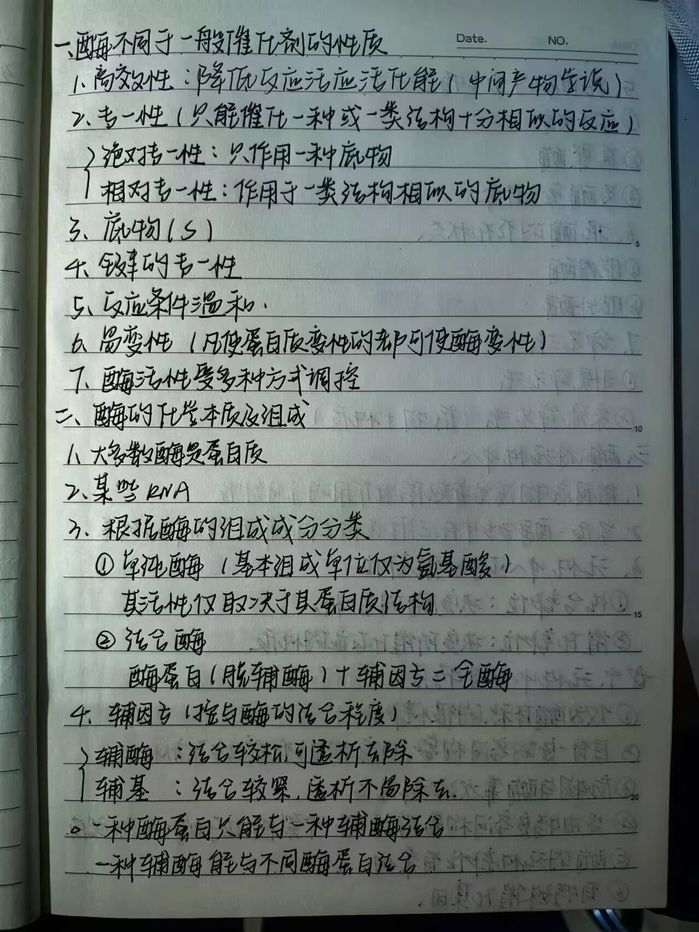 Date. NO.
一、酶不同于一般催化剂的性质
1、高效性：降低反应活应活化能（中间产物学说）
2、专一性（只能催化一种或一类结构十分相似的反应）
绝对专一性：只作用一种底物
相对专一性：作用于一类结构相似的底物
3、底物（S）
4、的专一性
5、反应条件温和.
5
6、易变性（凡使蛋白质变性的都可使酶变性）
7、酶活性受多种方式调控
二、酶的化学本质及组成
10
1、大多数酶是蛋白质
2、某些RNA
3、根据酶的组成成分分类
① 单纯酶（基本组成单位仅为氨基酸）
其活性仅取决于其蛋白质结构
15
② 结合酶
酶蛋白（脱辅酶）+辅因子=全酶
4、辅因子（按与酶的结合程度）
辅酶：结合较松,可透析去除
辅基：结合较紧,透析不易除去.
20
。一种酶蛋白只能与一种辅酶结合
一种辅酶能与不同酶蛋白结合